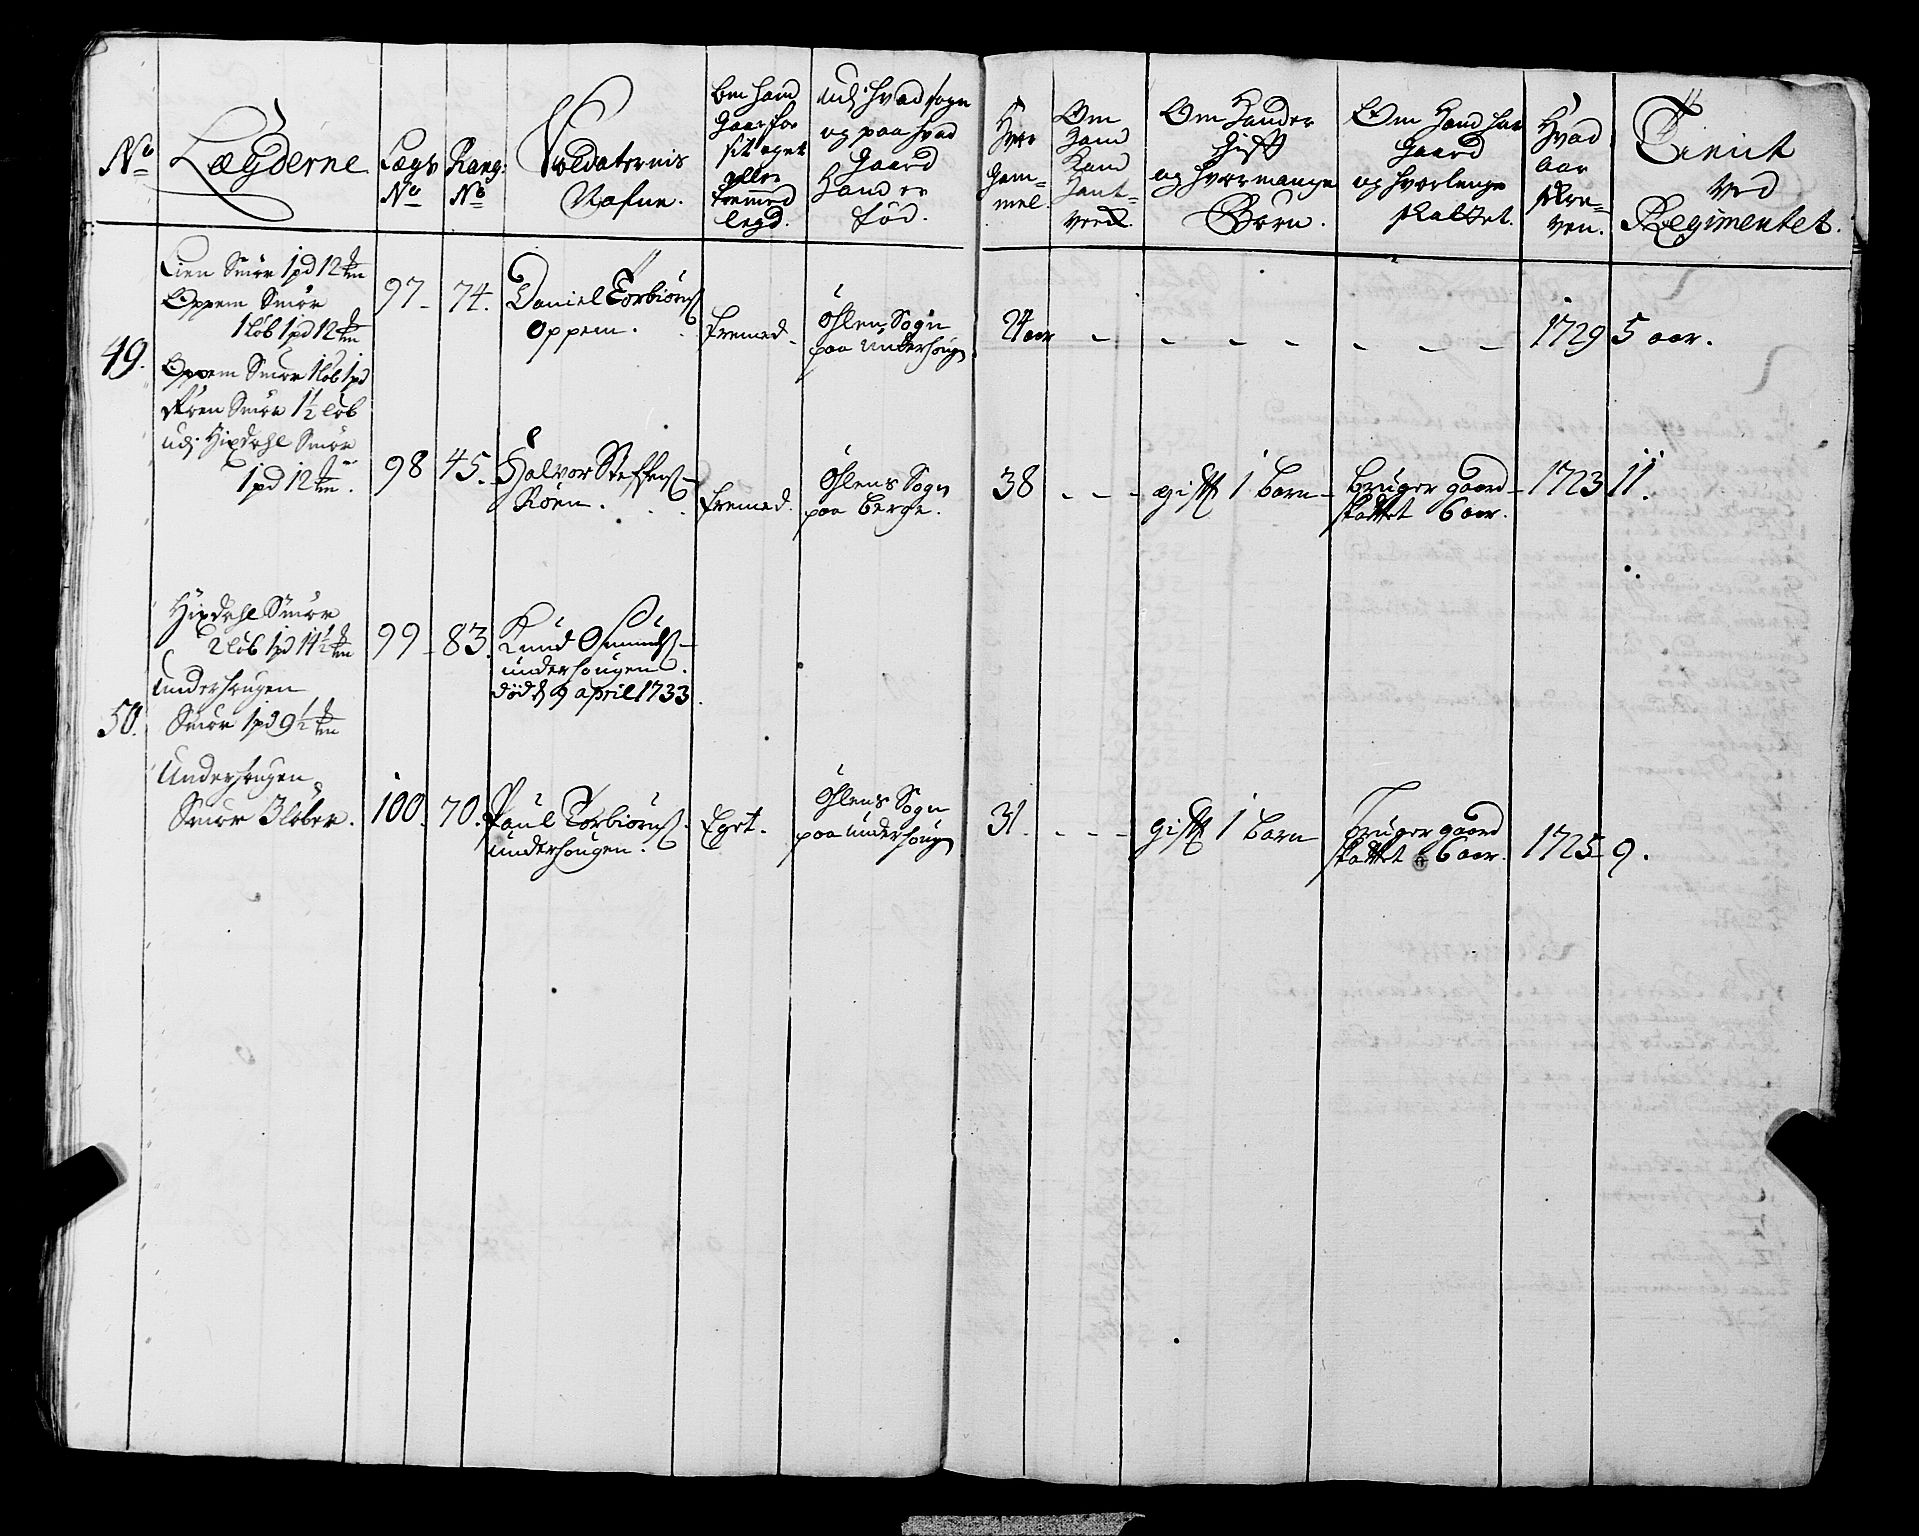 No
Lægderne
Lægs
No
Rang:
No
Soldaternis
Nafne.
Om hand
gaar for
sit eget
eller
fremmed
legd.
udj hvad sogn
og paa hvad
Gaard
Hand er
fød.
Hvor
Gam=
mel.
Om
Hand
Kand
Hant=
verk.
Om Hand er
gift
og hvor mange
Børn.
Om Hand har
Gaard
og hvor lenge
skattet.
Hvad
aar
skre=
ven.
Tient
ved
Regimentet.
49.
Lien Smør 1 pd 12
Oppem Smør
1 løb 1 pd 12
Oppem Smør 1 løb 1 pd
Røen Smør 1½ løb
udj Hixdahl Smør
1 pd 12
97
74.
Daniel Torbiørns
Oppem.
fremed.
Ølens Sogn
paa underhoug
24 aar
1729
5 aar.
98
45.
Halvor Steffens
Røen.
fremed.
Ølens Sogn
paa Berge.
38
gift 1 barn
bruger gaard
skattet 6 aar.
1723
11.
50.
Hixdahl Smør
2 løb 1 pd 14½
Underhougen
Smør 1 pd 9½
Underhougen
Smør 3 løber.
99
83.
Knud Omunds
underhougen.
død d 9 april 1733.
100.
70.
Paul Torbiørns
underhougen.
Eget.
Ølens Sogn
paa underhoug
31.
gift 1 barn
bruger gaard
skattet 6 aar.
1725
9.